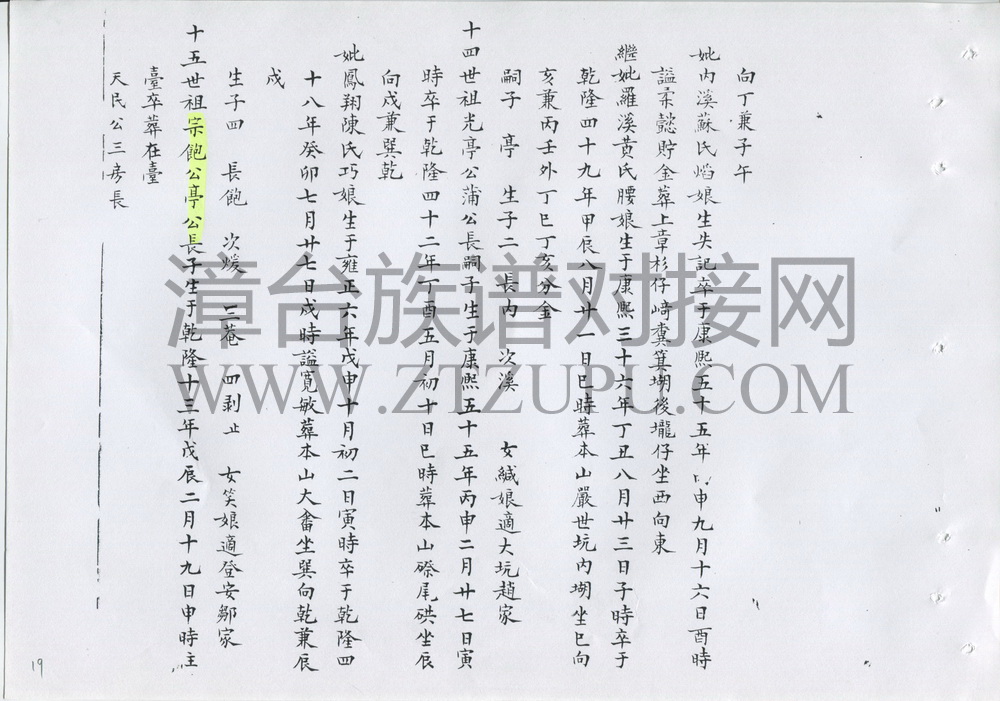 向丁兼子午
妣內溪蘇氏焰娘生失記卒于康熙五十五年 申九月十六日酉時
謚柔懿貯金葬上章杉仔崎糞箕堀後壠仔坐西向東
繼妣羅溪黃氏腰娘生于康熙三十六年丁丑八月廿三日子時卒于
乾隆四十九年甲辰八月廿一日巳時葬本山嚴世坑內堀坐巳向
亥兼丙壬外丁巳丁亥分金
嗣子 亭 生子二 長內 次溪 女緘娘適大坑趙家
十四世祖光亭公蒲公長嗣子生于康熙五十五年丙申二月廿七日寅
時卒于乾隆四十二年丁酉五月初十日巳時葬本山磜尾硔坐辰
向戌兼巽乾
妣鳳翔陳氏巧娘生于雍正六年戊申十月初二日寅時卒于乾隆四
十八年癸卯七月廿七日戌時謚寬敏葬本山大畬坐巽向乾兼辰
戌
生子四 長飽 次煖 三菴 四剥止 女笑娘適登安鄒家
十五世祖宗飽公亭公長子生于乾隆十三年戊辰二月十九日申時主
臺卒葬在臺
天民公三房長
19
漳台族谱对接网
WWW.ZTZUPU.COM